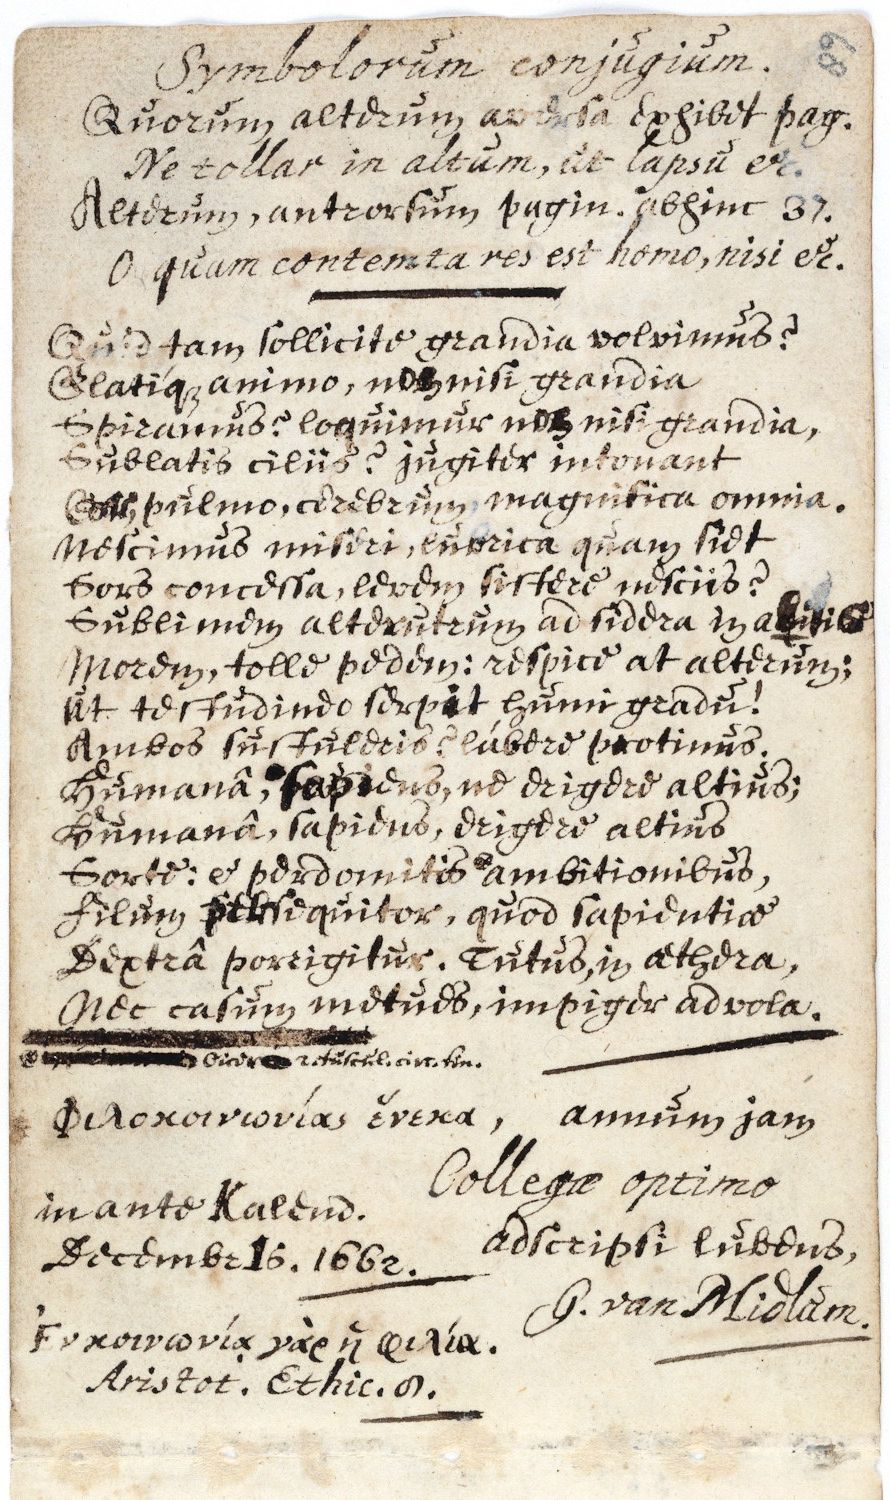 89
Symbolorum conjugium.
Quorum alterum aversa exhibet pag.
Ne tollar in altum, ut lapsu &c.
Alterum, antrorsum pagin. abhinc 37.
O quam contemta res est homo, nisi &c.
Quid tam sollicite grandia volvimus?
Elatiq animo, non nisi grandia
Spiramus? loquimur non nisi grandia,
Sublatis ciliis? jugiter intonant
pulmo, cerebrum, magnifica omnia.
Nescimus miseri, lubrica quam siet
Sors concessa, levem sistere nesciis?
Sublimem alterutrum ad sidera in
Morem, tolle pedem: respice at alterum;
Ut testudineo serpit humi gradu!
Ambos sustuleris? labere protinus.
Humanâ, sapiens, ne erigere altius;
Humanâ, sapiens, erigere altius
Sorte: e perdomitis ambitionibus,
Filum persequitor, quod sapientiæ
Dextrâ porrigitur. Tutus, in æthera,
Nec casum metues, impiger advola.
Cicer. 2. tuscul. circ. fin.
Φιλοκοινωνίας ἕνεκα, annum jam
Collegæ optimo
in ante Kalend.
adscripsi lubens,
Decembris. 1662.
G. van Midlum.
Ἐν κοινωνίᾳ γὰρ ἡ φιλία.
Aristot. Ethic. 8.